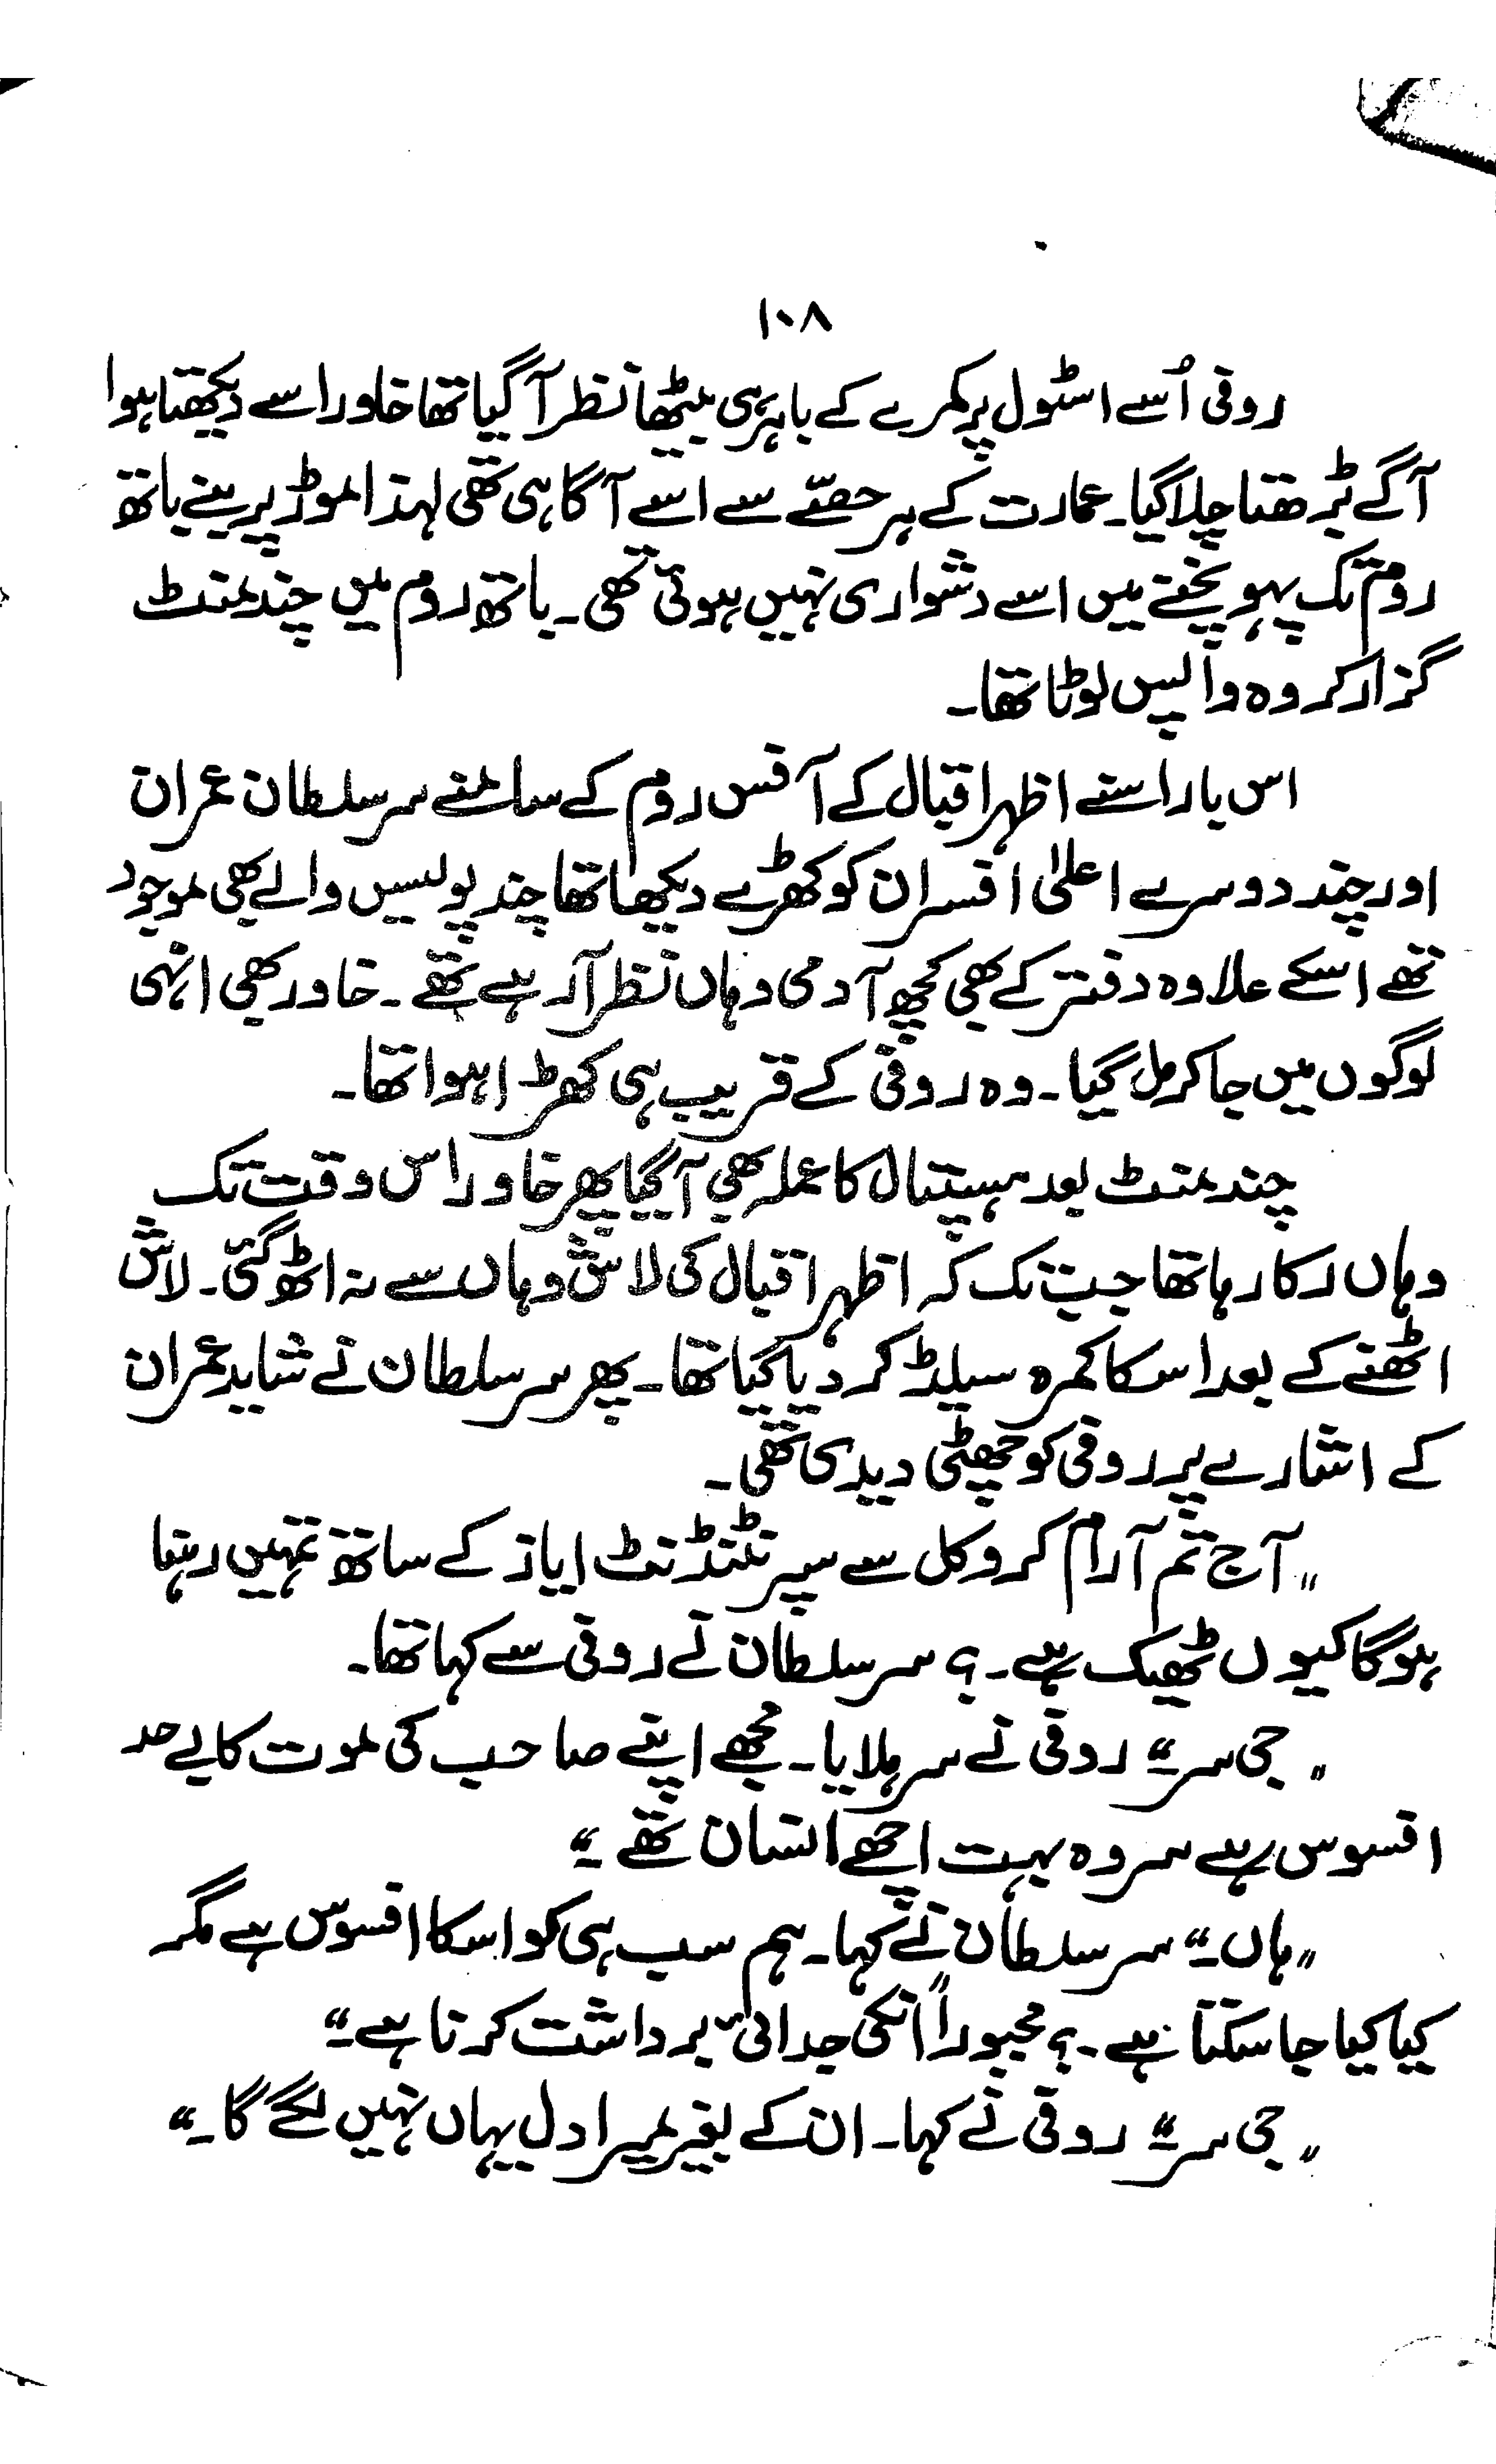 ۱۰۸
روفی اُسے اسٹول پر کمرے کے باہر ہی بیٹھا نظر آ گیا تھا خاور اسے دیکھتا ہوا
آگے بڑھتا چلا گیا۔ عمارت کے ہر حصّے سے اسے آگاہی تھی لہذا موڑ پر بنے باتھ
روم تک پہونچنے میں اسے دشواری نہیں ہوئی تھی۔ باتھ روم میں چند منٹ
گزار کر وہ واپس لوٹا تھا۔
اس بار اسنے اظہر اقبال کے آفس روم کے سامنے سر سلطان عمران
اور چند دوسرے اعلیٰ افسران کو کھڑے دیکھا تھا چند پولیس والے بھی موجود
تھے اسکے علاوہ دفتر کے بھی کچھ آدمی وہاں نظر آ رہے تھے۔ خاور بھی انہی
لوگوں میں جا کر مل گیا۔ وہ روفی کے قریب ہی کھڑا ہوا تھا۔
چند منٹ بعد ہسپتال کا عملہ بھی آ گیا پھر خاور اس وقت تک
وہاں رکا رہا تھا جب تک کہ اظہر اقبال کی لاش وہاں سے نہ اٹھ گئی۔ لاش
اٹھنے کے بعد اسکا کمرہ سیلڈ کر دیا گیا تھا۔ پھر سر سلطان نے شاید عمران
کے اشارے پر روفی کو چھٹی دیدی تھی۔
"آج تم آرام کرو کل سے سپرنٹنڈنٹ ایاز کے ساتھ تمہیں رہنا
ہوگا کیوں ٹھیک ہے۔؟ سر سلطان نے روفی سے کہا تھا۔
"جی سر۔" روفی نے سر ہلایا۔ مجھے اپنے صاحب کی موت کا بے حد
افسوس ہے سر وہ بہت اچھے انسان تھے۔"
"ہاں۔" سر سلطان نے کہا۔ ہم سب ہی کو اسکا افسوس ہے مگر
کیا کیا جا سکتا ہے۔؟ مجبوراً انکی جدائی برداشت کرنا ہے۔"
"جی سر۔" روفی نے کہا۔ ان کے بغیر میرا دل یہاں نہیں لگے گا۔"